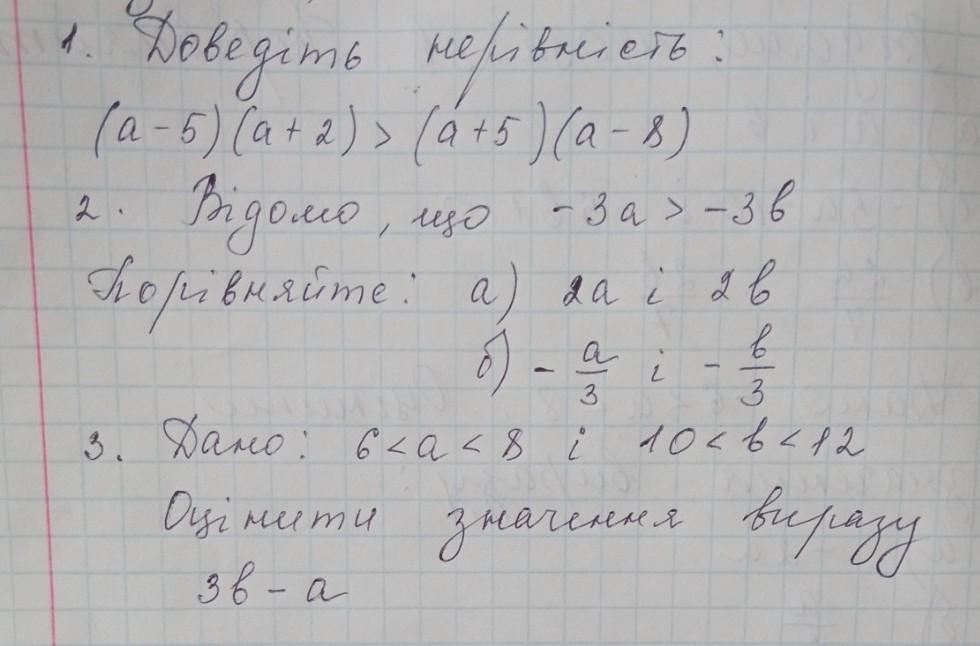 1. Доведіть нерівність:
(а - 5)(а + 2) > (а + 5)(а - 8)
2. Відомо, що -3а > -3в
Порівняйте: а) 2а і 2в
б) - а/3 і - в/3
3. Дано: 6 < а < 8 і 10 < в < 12
Оцінити значення виразу
3в - а